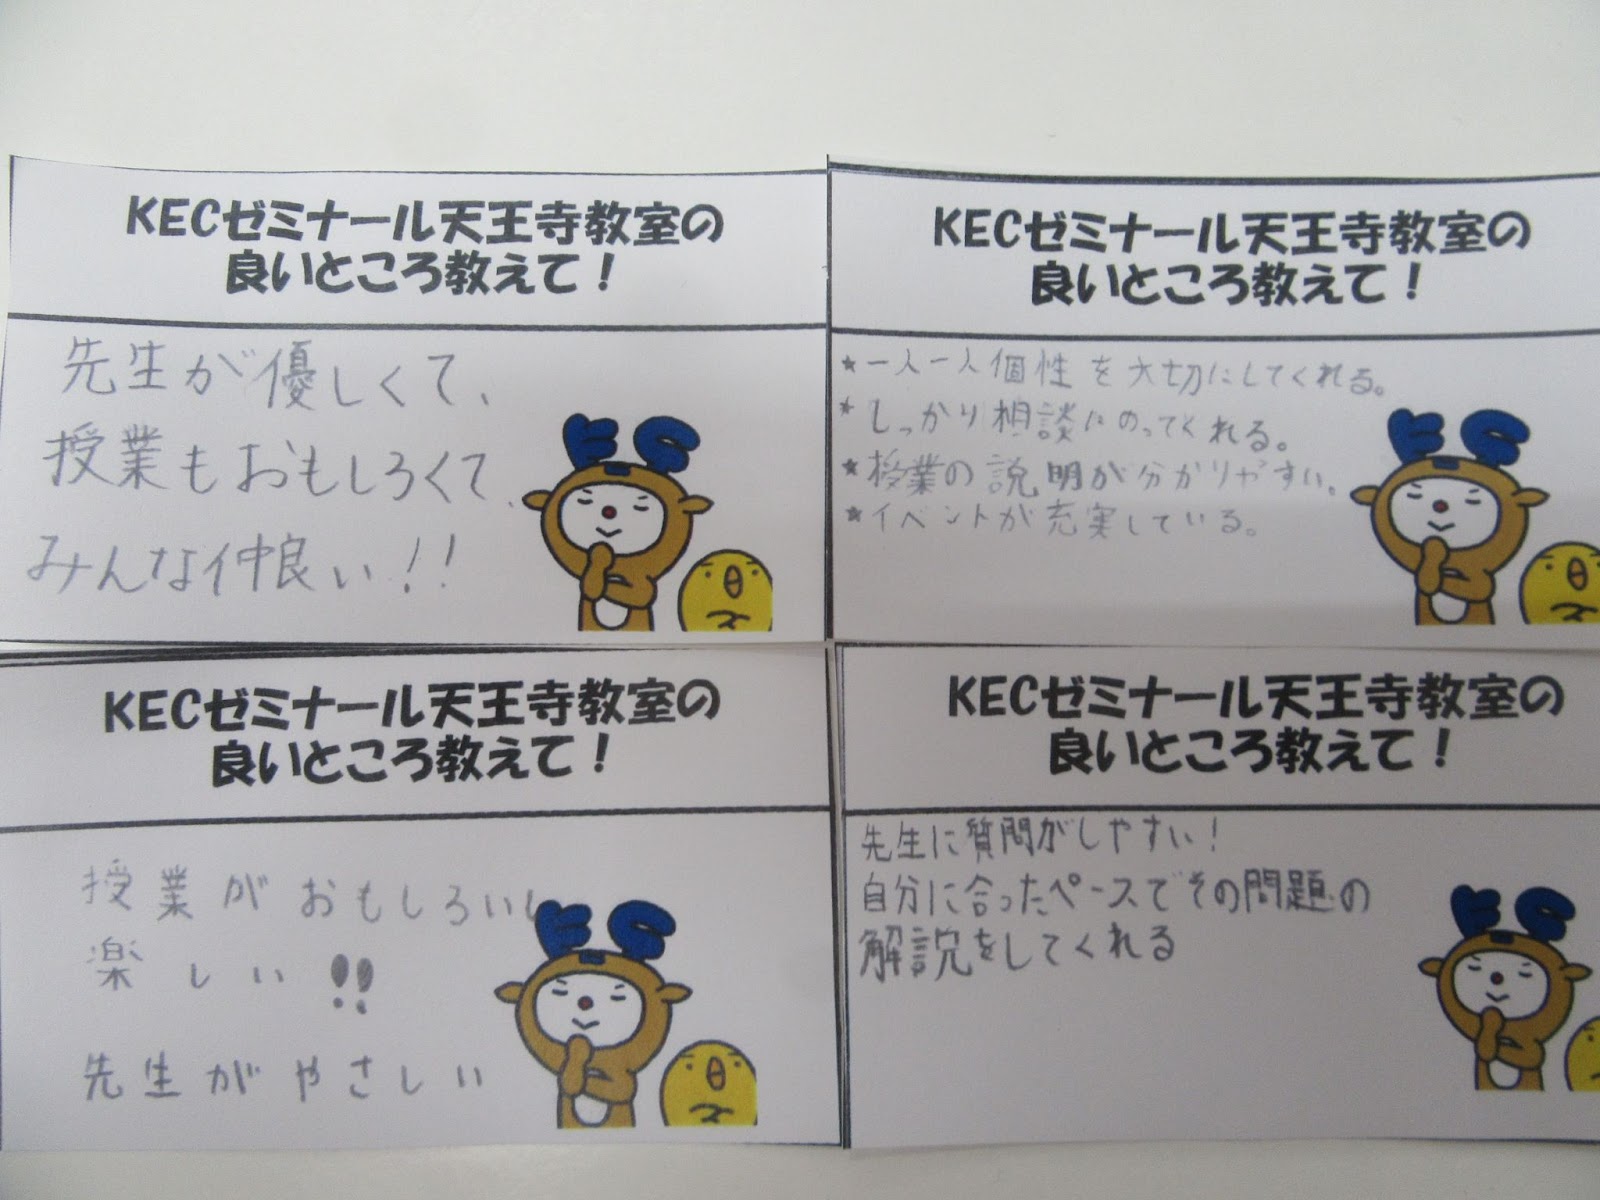 KECゼミナール天王寺教室の
良いところ教えて！
先生が優しくて、
授業もおもしろくて、
みんな仲良い！！
KECゼミナール天王寺教室の
良いところ教えて！
★一人一人個性を大切にしてくれる。
★しっかり相談にのってくれる。
★授業の説明が分かりやすい。
★イベントが充実している。
KECゼミナール天王寺教室の
良いところ教えて！
授業がおもしろいし
楽しい!!
先生がやさしい
KECゼミナール天王寺教室の
良いところ教えて！
先生に質問がしやすい！
自分に合ったペースでその問題の
解説をしてくれる